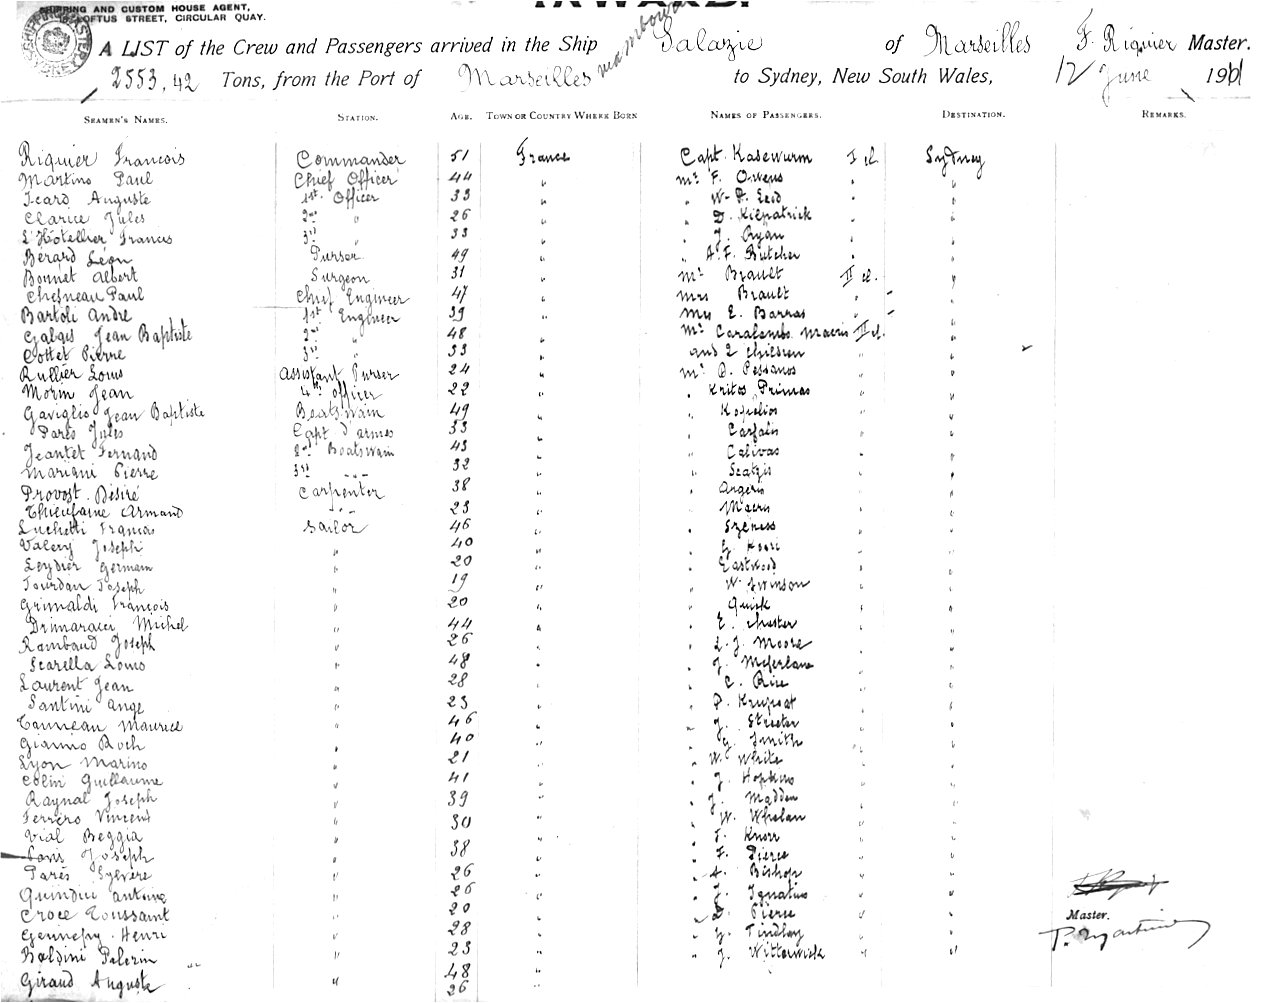 SHIPPING AND CUSTOM HOUSE AGENT,
LOFTUS STREET, CIRCULAR QUAY.
INWARD.
A LIST of the Crew and Passengers arrived in the Ship Salazie of Marseilles F. Riquier Master.
2553,42 Tons, from the Port of Marseilles to Sydney, New South Wales, 12 June 1901
SEAMEN'S NAMES. STATION. AGE. TOWN OR COUNTRY WHERE BORN NAMES OF PASSENGERS. DESTINATION. REMARKS.
Riquier Francois Commander 51 France Capt. Kasewurm I cl. Sydney
Martino Paul Chief Officer 44 " Mr F. Owens " "
Icard Auguste 1st Officer 33 " " " "
Clarice Jules 2nd " 26 " " D. Kilpatrick " "
L'Hotellier Francis 3rd " 33 " " J. Ryan " "
Berard Léon Purser 49 " " A. F. Butcher " "
Bonnet Albert Surgeon 31 " Mr Brault II cl. "
Chesneau Paul Chief Engineer 47 " Mrs Brault " "
Bartoli André 1st Engineer 39 " E. Barras " "
Galgis Jean Baptiste 2nd " 48 " Mr Macris II cl. "
Cottet Pierre 3rd " 33 " and 2 children "
Rullier Louis Assistant Purser 24 " Mr Pessanos " "
Morin Jean 4th Officer 22 " " Kritos Primas " "
Gaviglio Jean Baptiste Boatswain 49 " " " "
Pares Jules Capt d'armes 33 " " " "
Jeantet Fernand 2nd Boatswain 43 " " Calivas " "
Mariani Pierre 3rd " 32 " " " "
Provost Désiré Carpenter 38 " " " "
Thieufaine Armand " 23 " " Macris " "
Luchetti Francois Sailor 46 " " " "
Valery Joseph " 40 " " " "
Leydier Germain " 20 " " Eastwood " "
Jourdan Joseph " 19 " " W. Swinson " "
Grimaldi François " 20 " " Quick " "
Drimaracci Michel " 44 " " E. Chester " "
Rambaud Joseph " 26 " " L. J. Moore " "
Scarella Louis " 48 " " J. McFerlane " "
Laurent Jean " 28 " " C. Rice " "
Santini Ange " 23 " " P. " "
Tanneau Maurice " 46 " " J. Streeter " "
Gianno Roch " 40 " " G. Smith " "
Lyon Marino " 21 " " W. White " "
Colin Guillaume " 41 " " J. Hopkins " "
Raynal Joseph " 39 " " J. Madden " "
Ferrero Vincent " 30 " " W. Whelan " "
Vial Beggia " " " Knorr " "
Pons Joseph " 38 " " F. Pierce " "
Pares Sylvère " 26 " " A. Bishop " "
Quindici Antoine " 26 " " J. Ignatius " "
Croce Toussaint " 20 " " Pierce " "
Gennepy Henri " 28 " " Findlay " "
Baldini Pelerin " 23 " " J. Witterwick " "
48 "
Giraud Auguste " 26 "
Master.
P. Martino